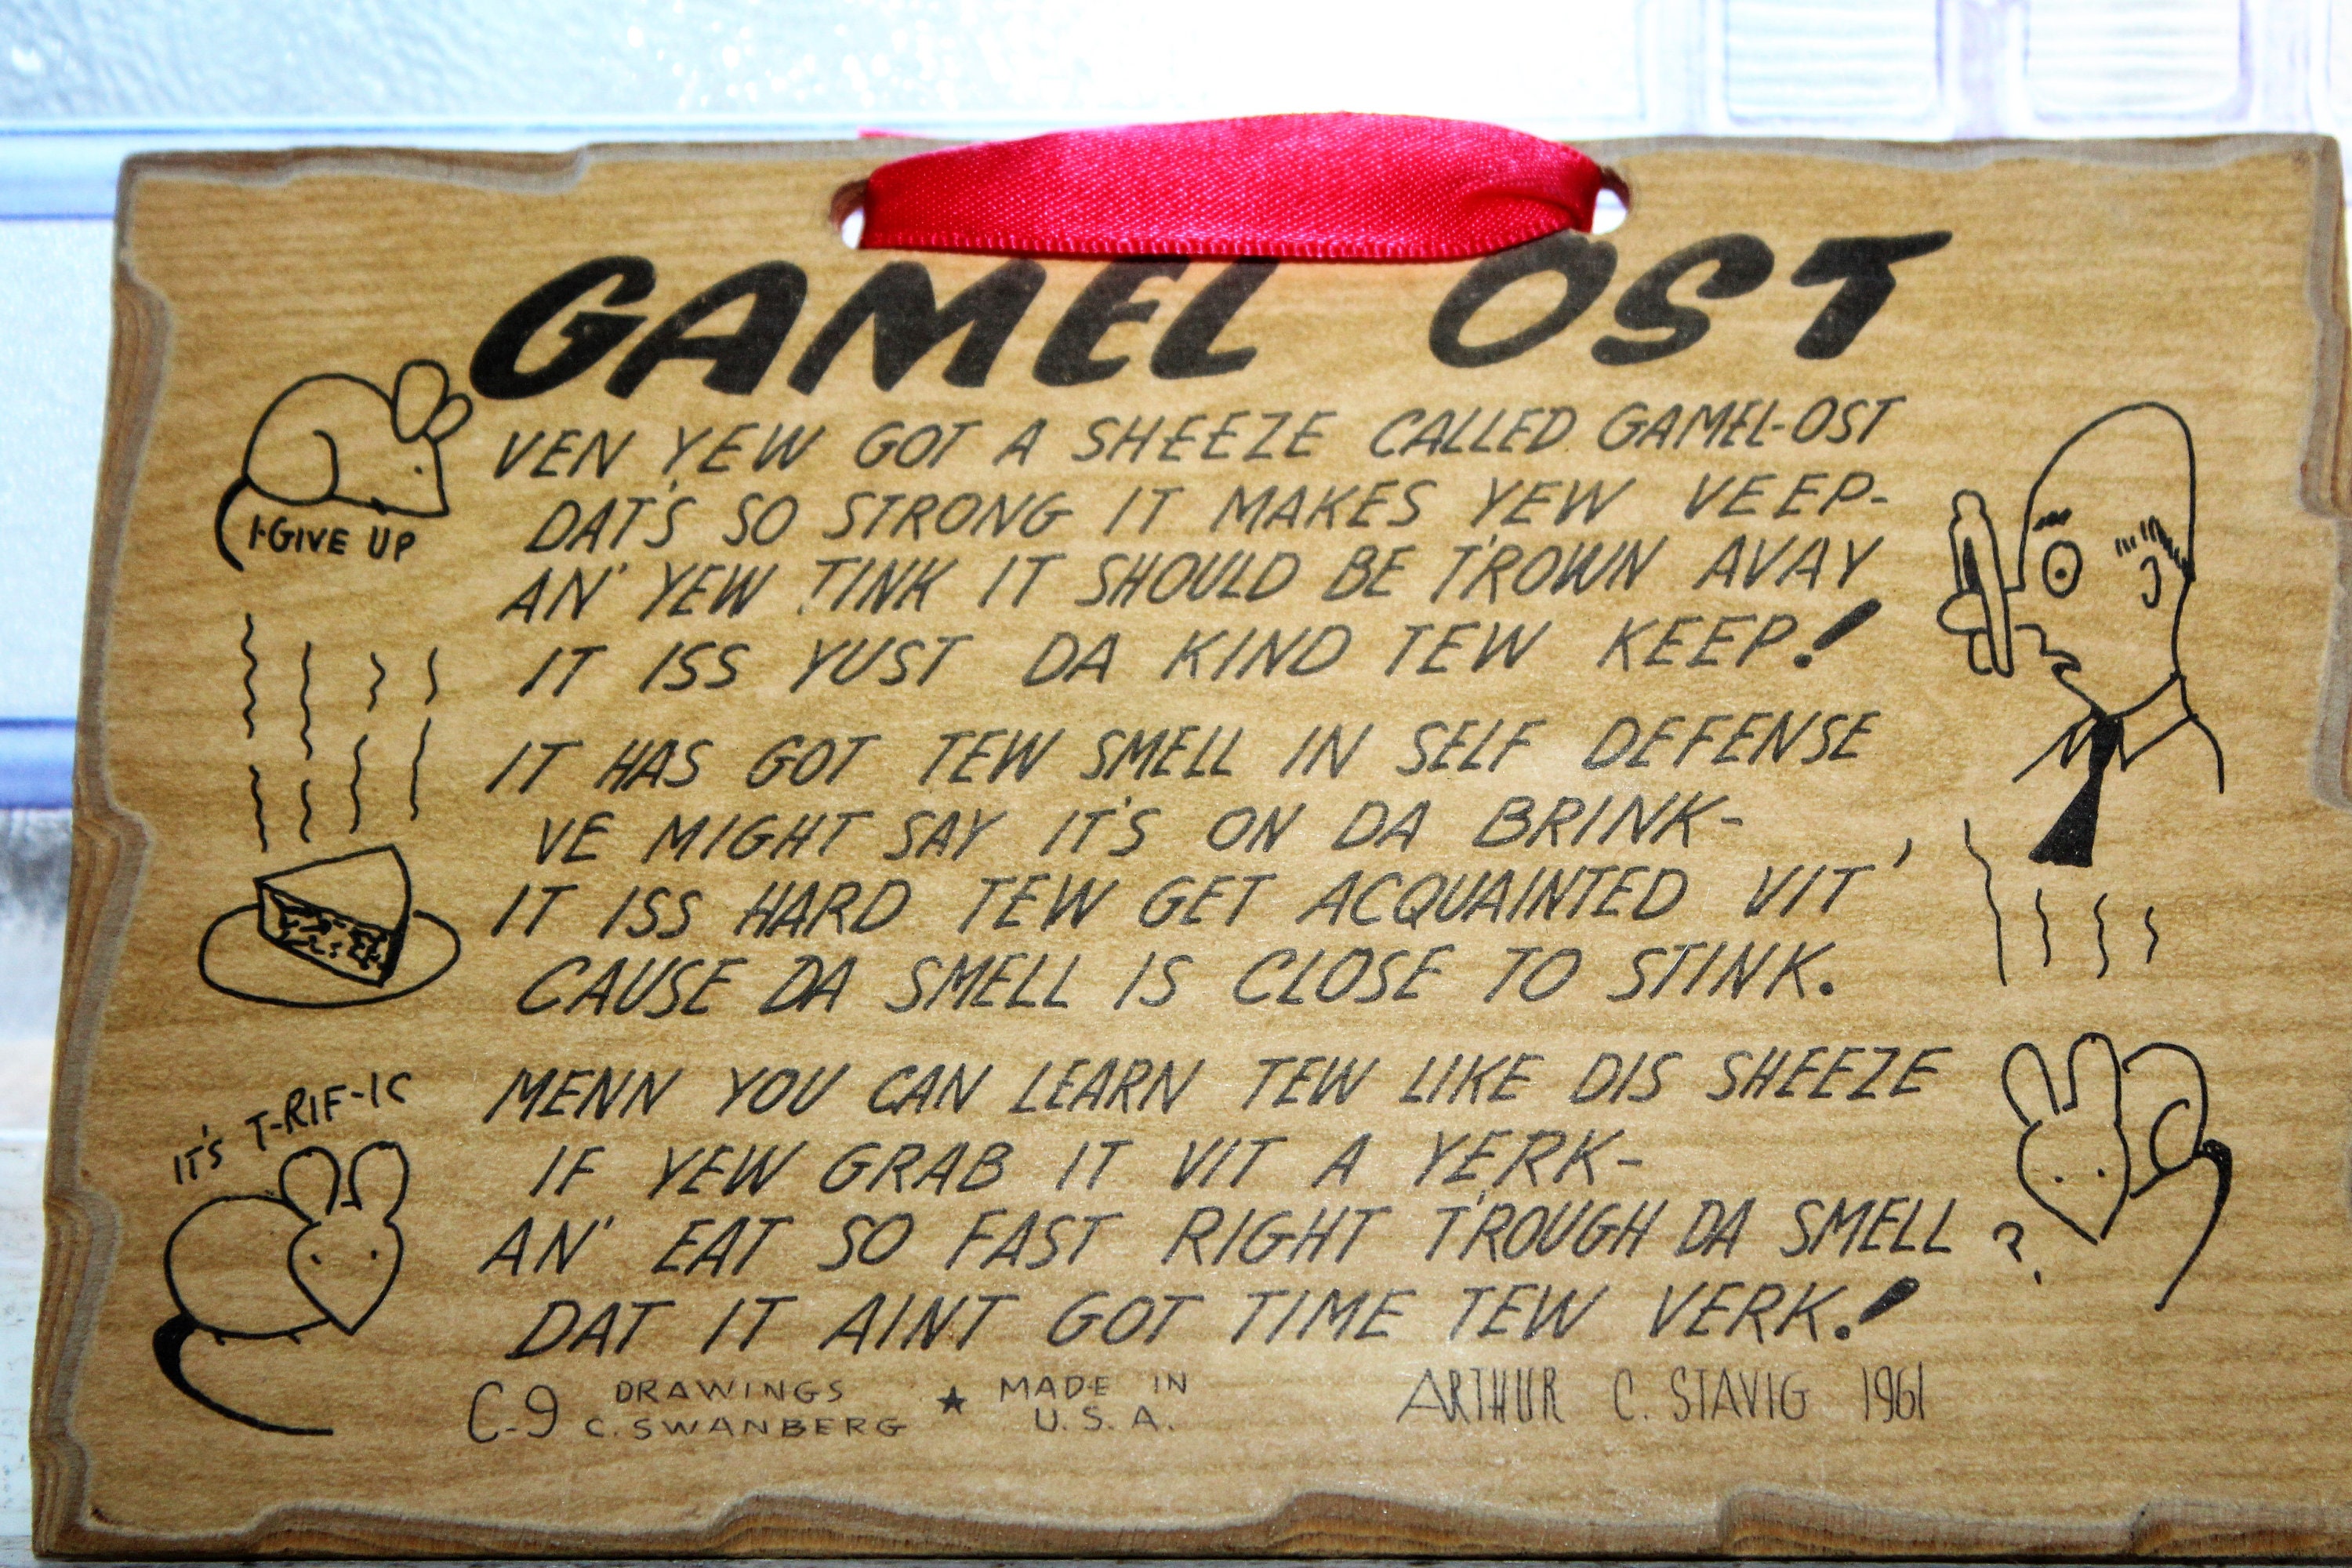 GAMEL OST
VEN YEW GOT A SHEEZE CALLED GAMEL-OST
DAT'S SO STRONG IT MAKES YEW VEEP-
AN' YEW TINK IT SHOULD BE T'ROWN AVAY
IT ISS YUST DA KIND TEW KEEP!
I GIVE UP
IT HAS GOT TEW SMELL IN SELF DEFENSE
VE MIGHT SAY IT'S ON DA BRINK-
IT ISS HARD TEW GET ACQUAINTED VIT'
CAUSE DA SMELL IS CLOSE TO STINK.
MENN YOU CAN LEARN TEW LIKE DIS SHEEZE
IF YEW GRAB IT VIT A YERK-
AN' EAT SO FAST RIGHT T'ROUGH DA SMELL
DAT IT AINT GOT TIME TEW VERK!
IT'S T-RIF-IC
?
C-9 DRAWINGS ★ MADE IN
C. SWANBERG U.S.A.
ARTHUR C. STAVIG 1961